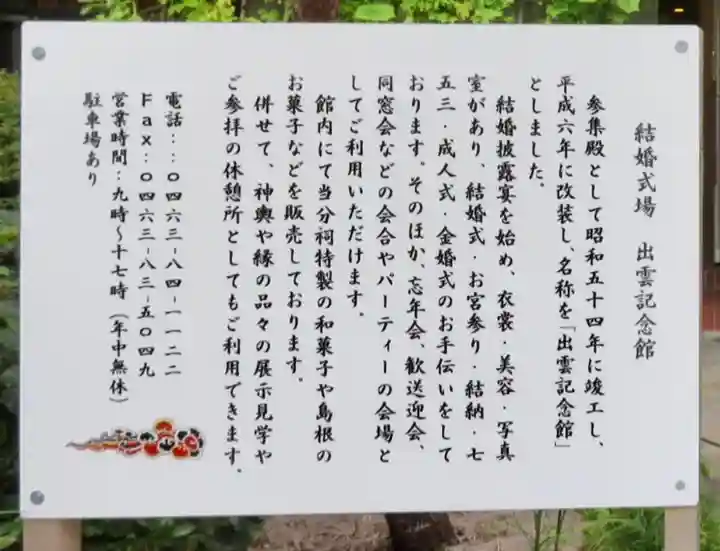 結婚式場　出雲記念館
参集殿として昭和五十四年に竣工し、
平成六年に改装し、名称を「出雲記念館」
としました。
結婚披露宴を始め、衣裳・美容・写真
室があり、結婚式・お宮参り・結納・七
五三・成人式・金婚式のお手伝いをして
おります。そのほか、忘年会、歓送迎会、
同窓会などの会合やパーティーの会場と
してご利用いただけます。
館内にて当分祠特製の和菓子や島根の
お菓子などを販売しております。
併せて、神輿や縁の品々の展示見学や
ご参拝の休憩所としてもご利用できます。
電話：：０４６３－８４－１１２２
Ｆａｘ：０４６３－８３－５０４９
営業時間：九時～十七時（年中無休）
駐車場あり